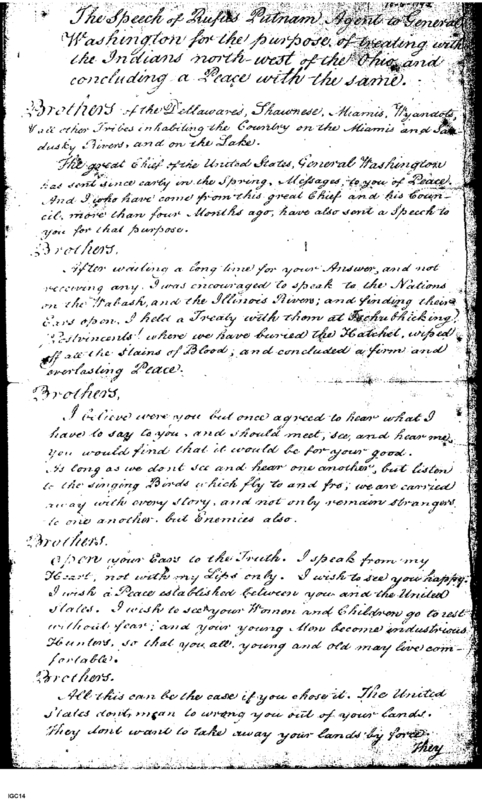 The Speech of Rufus Putnam Agent to General
Washington for the purpose of treating with
the Indians north-west of the Ohio, and
concluding a Peace with the same.
Brothers of the Dellawares, Shawnese, Miamis, Wyandots,
& all other Tribes inhabiting the Country on the Miamis and San
dusky Rivers, and on the Lake.
The great Chief of the United States, General Washington
has sent since early in the Spring, Messages to you of Peace.
And I who have come from this great Chief and his Coun-
cil, more than four Months ago, have also sent a Speech to
you for that purpose.
Brothers,
After waiting a long time for your Answer, and not
receiving any, I was encouraged to speak to the Nations
on the Wabash, and the Illinois Rivers; and finding their
Ears open, I held a Treaty with them at Tschubhicking,
Postvincents! where we have buried the Hatchet, wiped
off all the stains of Blood, and concluded a firm and
everlasting Peace.
Brothers,
I believe were you but once agreed to hear what I
have to say to you, and should meet, see, and hear me,
you would find that it would be for your good.
As long as we dont see and hear one another, but listen
to the singing Birds which fly to and fro; we are carried
away with every story, and not only remain strangers
to one another, but Enemies also.
Brothers.
Open your Ears to the Truth. I speak from my
Heart, not with my Lips only. I wish to see you happy;
I wish a Peace established between you and the United
States. I wish to see your Women and Children go to rest
without fear; and your young Men become industrious
Hunters, so that you all, young and old may live com-
fortable.
Brothers.
All this can be the case if you chose it. The United
States dont mean to wrong you out of your lands.
They dont want to take away your lands by force.
They
IGC14